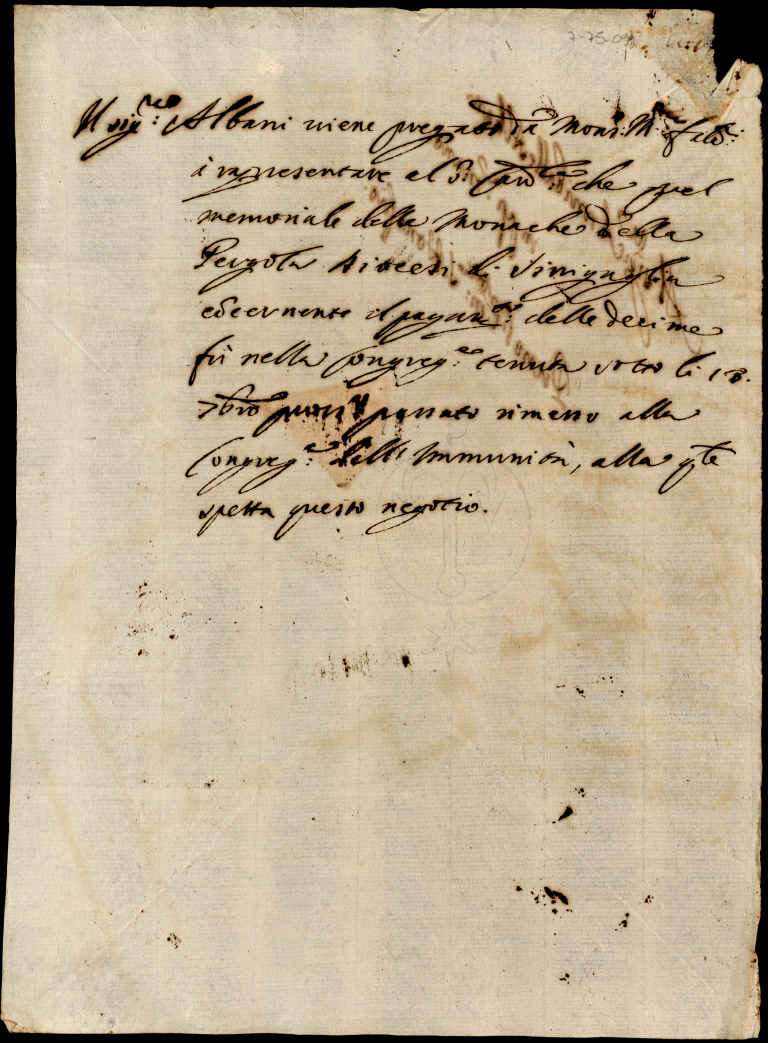 7-75-04
Il sig.re Albani viene pregato da Mons.r
à rapresentare al S.r Card.le che quel
memoriale delle Monache della
Pergola Diocesi di Sinigaglia
cõcernente il pagam.to delle decime
fù nella Congreg.ne tenuta sotto li 13.
7bre pross passato rimesso alla
Congreg.ne dell' Immunità, alla qle
spetta questo negotio.